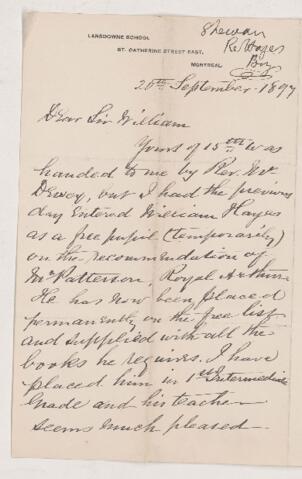 LANSDOWNE SCHOOL
ST. CATHERINE STREET EAST,
MONTREAL,
Shewan
Re Hayes
Boy
20th September 1897
Dear Sir William
Yours of 15th was
handed to me by Rev. Mr
Dewey, but I had the previous
day entered William Hayes
as a free pupil (temporarily)
on the recommendation of
Mr Patterson, Royal Arthur.
He has now been placed
permanently on the free list
and supplied with all the
books he requires. I have
placed him in 1st Intermediate
Grade and his teacher
seems much pleased